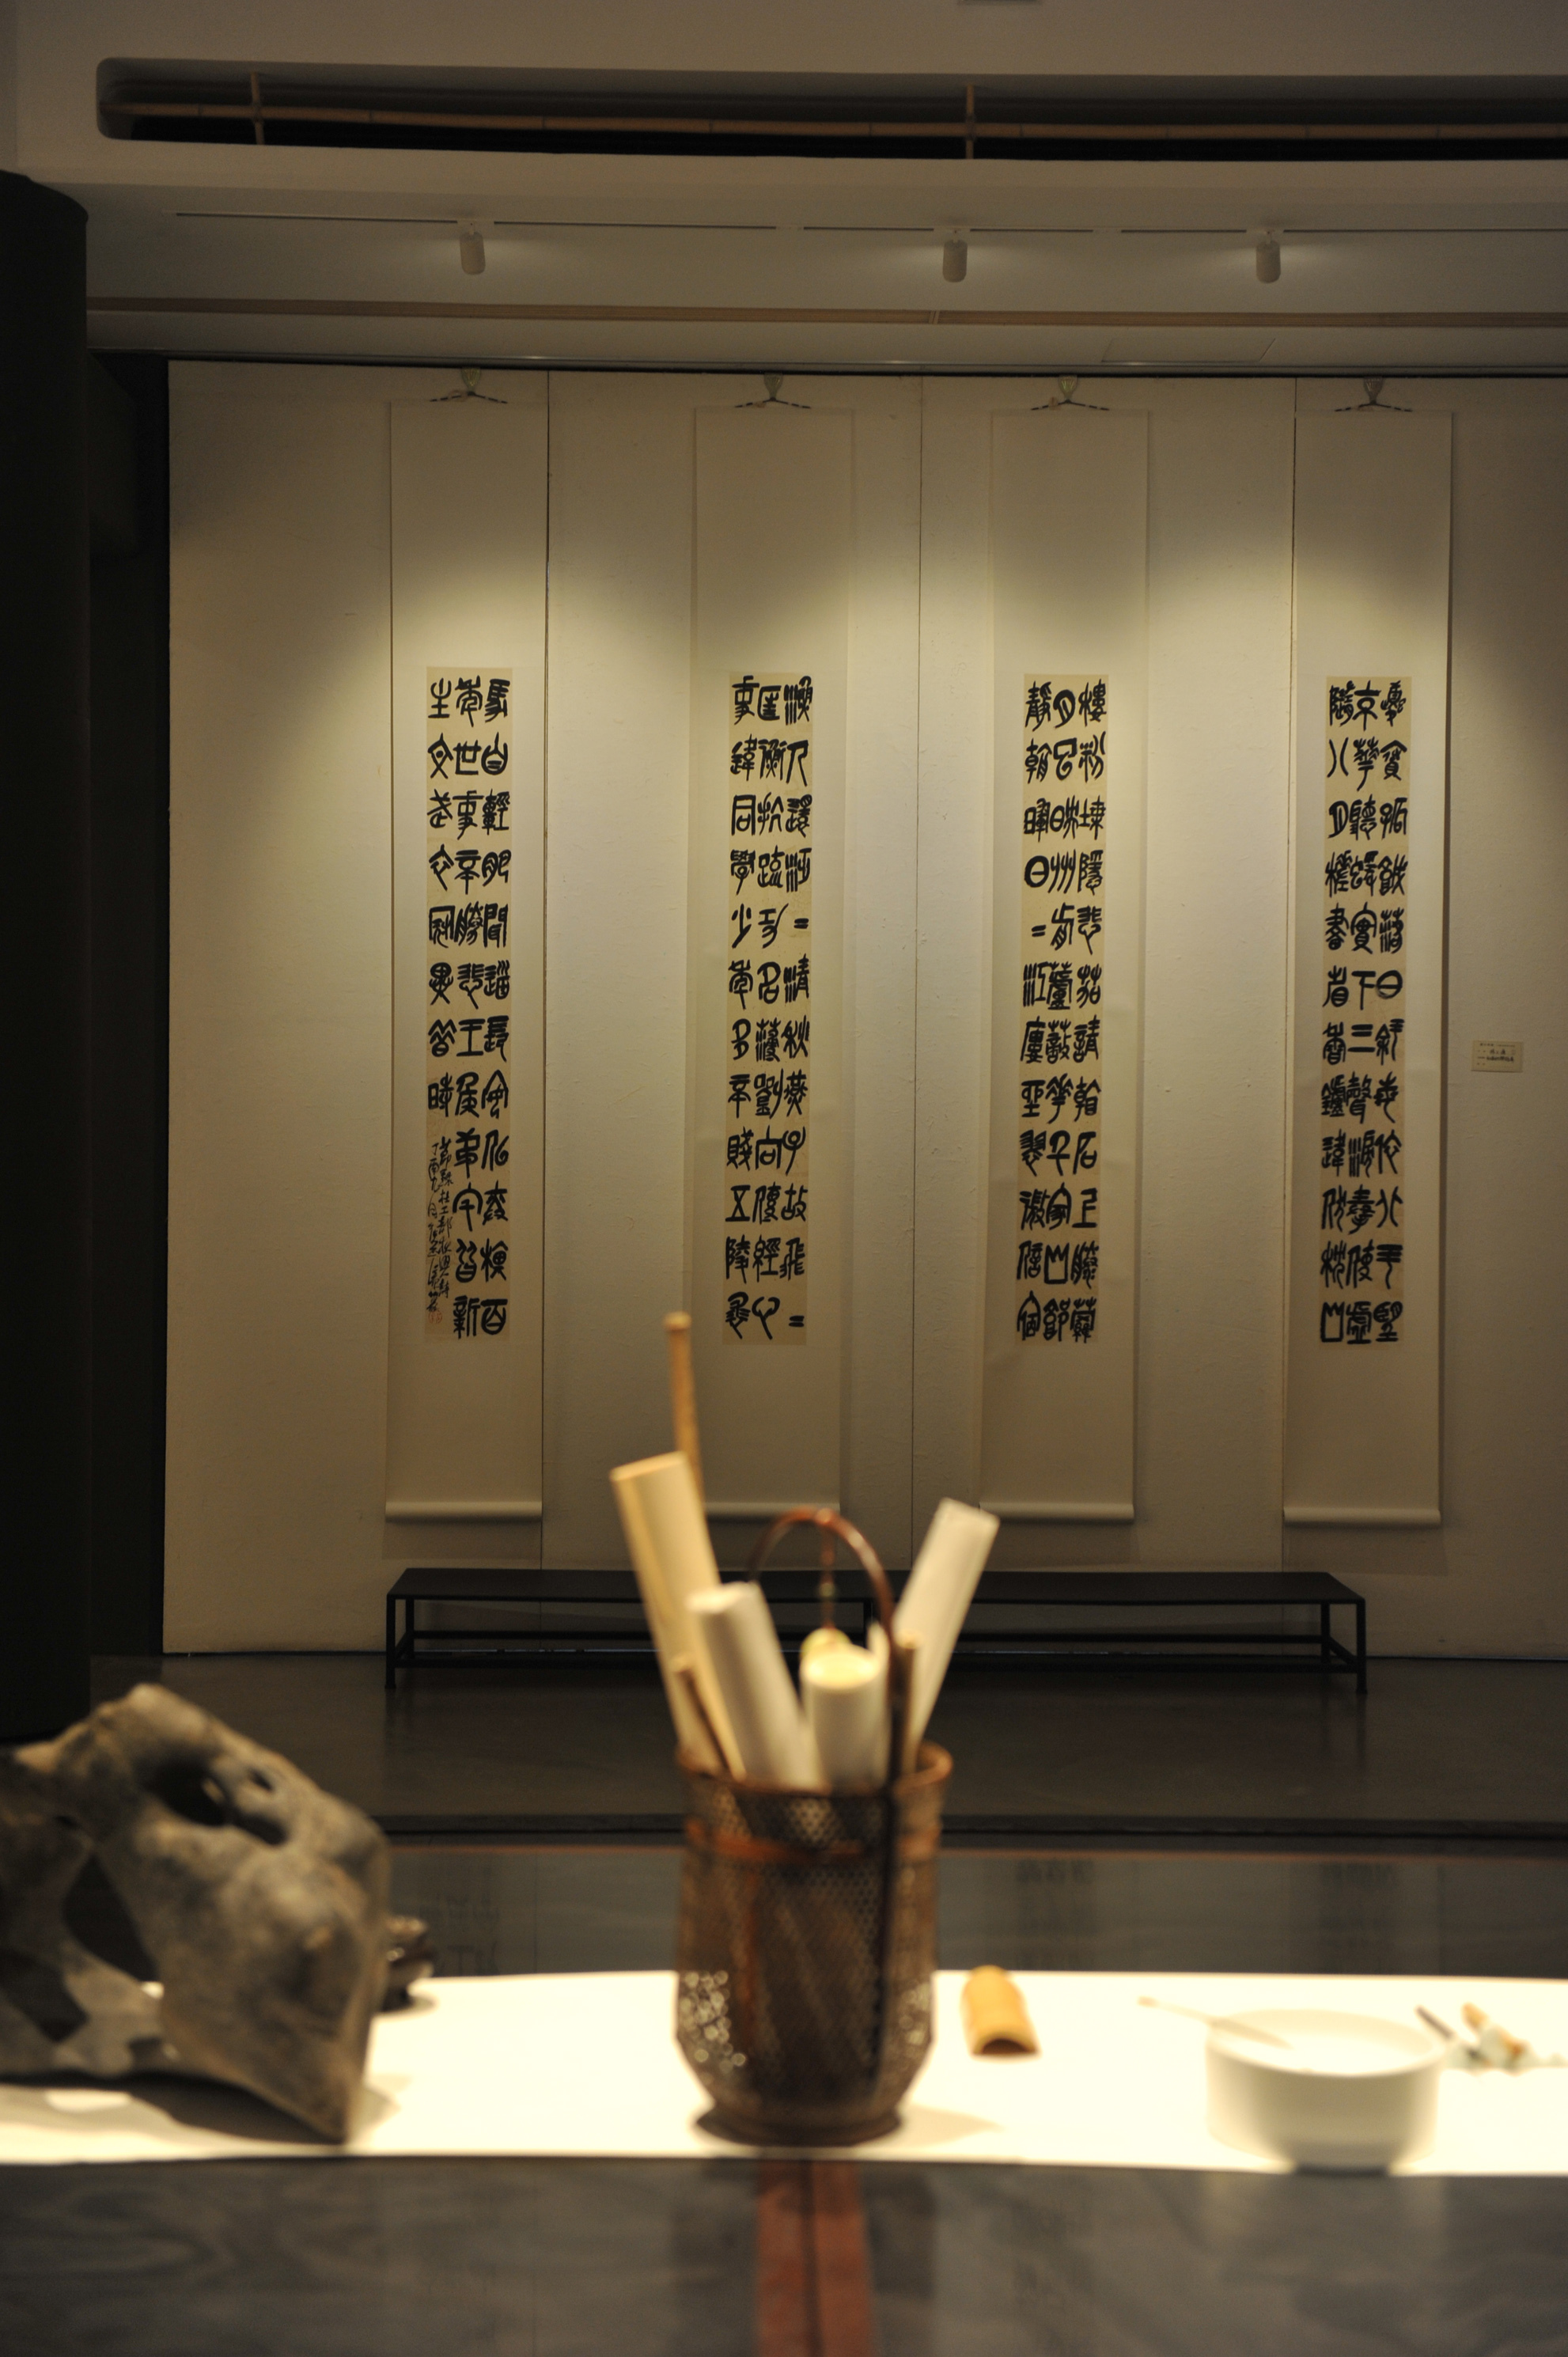 夔府孤城落日斜每依北斗望
京華聽猿實下三聲淚奉使虛
隨八月槎畫省香爐違伏枕山
樓粉堞隱悲笳請看石上藤蘿
月已映州前蘆荻花千家山郭
靜朝暉日=江樓坐翠微信宿
漁人還泛=清秋燕子故飛=
匡衡抗疏功名薄劉向傳經心
事違同學少年多不賤五陵衣
馬自輕肥聞道長安似弈棋百
年世事不勝悲王侯第宅皆新
主文武衣冠異昔時
節錄杜工部秋興
丁酉